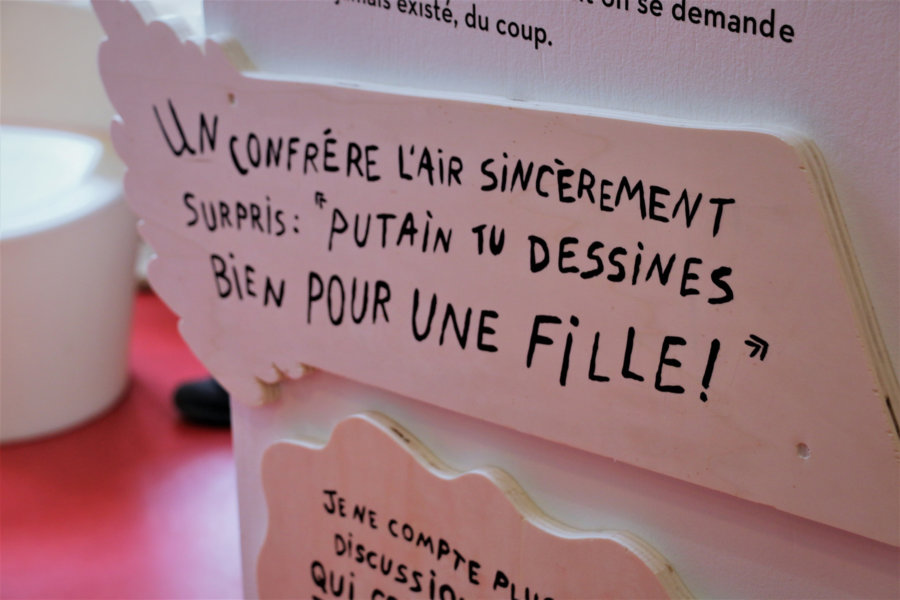 on se demande
jamais existé, du coup.
UN CONFRÉRE L'AiR SiNCÈREMENT
SURPRIS: « PUTAiN TU DESSiNES
BiEN POUR UNE FiLLE! »
JE NE COMPTE PLUS
DiSCUSSIO
QUi